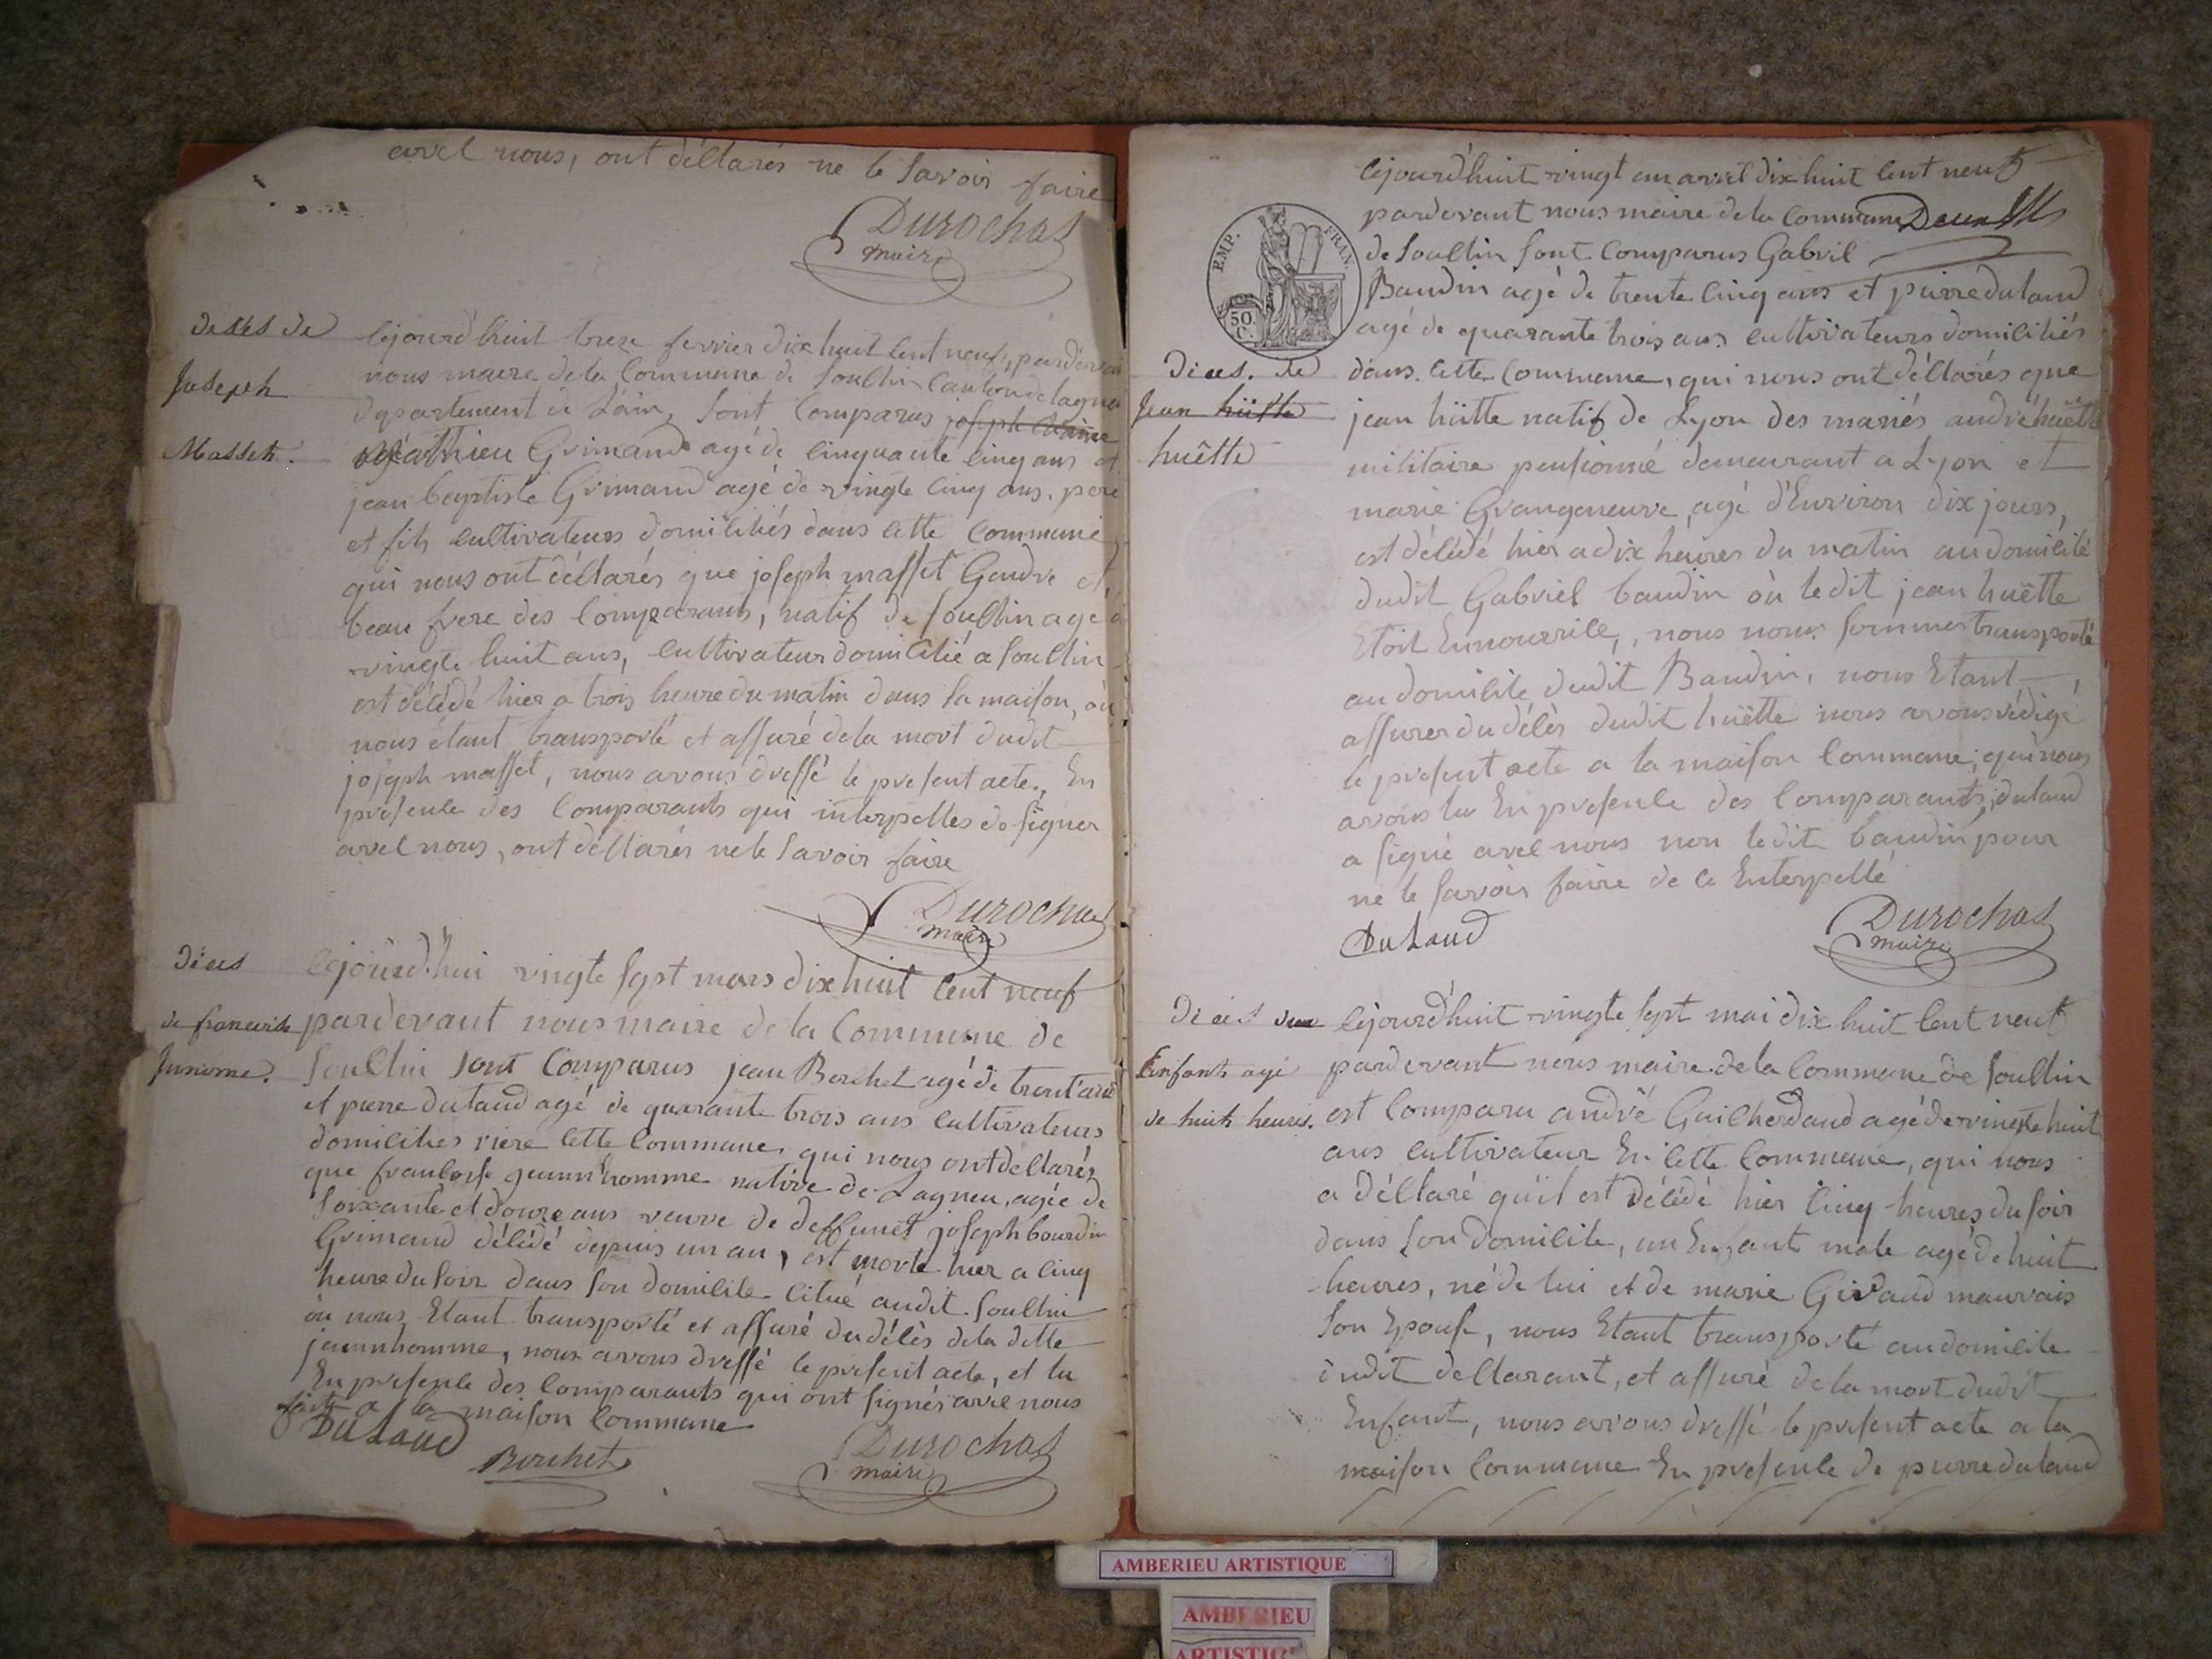 avec nous, ont déclarés ne le savoir faire
Durochat
maire
Deses de
Joseph
Masset.
Cejourd'huit treze fevrier dix huit cent neuf, pardevan
nous maire de la Commune de Souclin canton de lagneu
departement de L'ain, sont comparus joseph
Mathieu Grimand agé de cinquante cinq ans et
jean baptiste Grimand agé de vingte cinq ans, pere
et fils cultivateurs domiciliés dans cette commune
qui nous ont déclarés que joseph masset Gendre et
beau frere des comparants, natif de souclin agé de
vingte huit ans, cultivateur domicilié a souclin
est décédé hier a trois heure du matin dans sa maison, où
nous étant transporté et assuré de la mort dudit
joseph masset, nous avons dressé le present acte, En
presence des comparants qui interpellés de signer
avec nous, ont déclarés ne le savoir faire
Durochat
maire
Déces
de francoise
Junome.
Cejourd'hui vingte sept mars dix huit cent neuf
pardevant nous maire de la Commune de
Souclin sont Comparus jean Berchet agé de trent'ans
et pierre dutaud agé de quarante trois ans cultivateurs
domiciliés riere cette commune, qui nous ont declarés
que francoise jeunn'homme native de Lagneu, agée de
soixante et douze ans veuve de deffunct joseph bourdin
Grimand décédé depuis un an, est morte hier a cinq
heure du soir dans son domicile citué audit souclin
où nous Etant transporté et assuré du décès de la ditte
jeunnhomme, nous avons dressé le present acte, et lu
En presence des comparants qui ont signés avec nous
fait a la maison commune
Dutaud
Berchet
Durochat
maire
Cejourd'huit vingt un avril dix huit cent neuf
pardevant nous maire de la commune
de Souclin sont comparus Gabril
EMP. FRAN.
50 C.
Baudin agé de trente cinq ans et pierre dutaud
agé de quarante trois ans cultivateurs domiciliés
Déces. de
Jean hüette
huêtte
dans cette commune, qui nous ont déclarés que
jean hüette natif de Lyon des mariés andré huëtte
militaire pensionné demeurant a Lyon et
marie Grangeneuve, agé d'Environ dix jours,
est décédé hier a dix heures du matin au domicile
dudit Gabriel baudin où le dit jean huëtte
Etoit Ennourrice, nous nous sommes transporté
au domicile dudit Baudin, nous Etant
assurer du décès dudit hüëtte nous avons rédigé
le present acte a la maison commune, qui nous
avons lu En presence des comparants, dutaud
a signé avec nous non ledit baudin pour
ne le savoir faire de ce Enterpellé
Dutaud
Durochat
maire
Déces d'un
Enfant agé
de huit heures.
Cejourd'huit vingte sept mai dix huit cent neuf
pardevant nous maire de la commune de souclin
est comparu andré Guilherdaud agé de vingte huit
ans cultivateur En cette commune, qui nous
a déclaré qu'il est décédé hier cinq heures du soir
dans son domicile, un Enfant male agé de huit
heures, né de lui et de marie Givaud mauvais
son Epouse, nous Etant transporté au domicile
dudit declarant, et assuré de la mort dudit
Enfant, nous avons dressé le present acte a la
maison commune En presence de pierre dutaud
AMBERIEU ARTISTIQUE
AMBERIEU
ARTISTIQUE